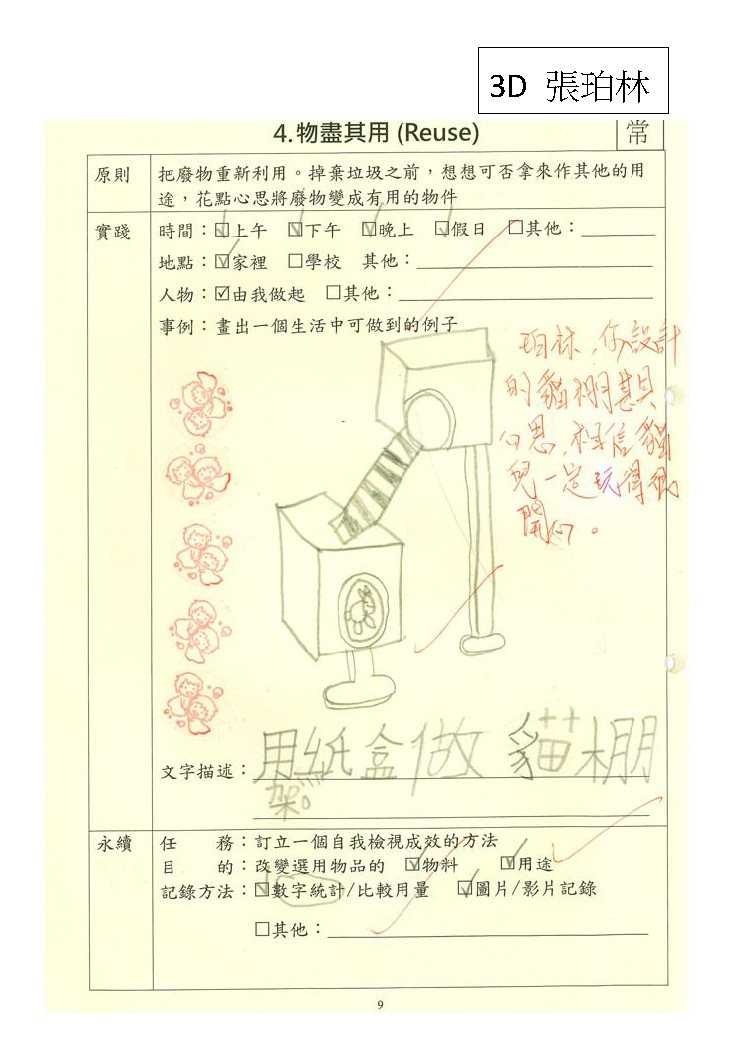 3D 張珀林
4.物盡其用 (Reuse)
常
原則
把廢物重新利用。掉棄垃圾之前，想想可否拿來作其他的用
途，花點心思將廢物變成有用的物件
實踐
時間：☑上午 ☑下午 ☑晚上 ☑假日 □其他：
地點：☑家裡 □學校 其他：
人物：☑由我做起 □其他：
事例：畫出一個生活中可做到的例子
珀林，你設計
的貓棚甚具
心思，相信貓
兒一定玩得很
開心。
文字描述：用紙盒做貓棚
架。
永續
任務：訂立一個自我檢視成效的方法
目的：改變選用物品的 ☑物料 ☑用途
記錄方法：☑數字統計/比較用量 ☑圖片/影片記錄
□其他：
9